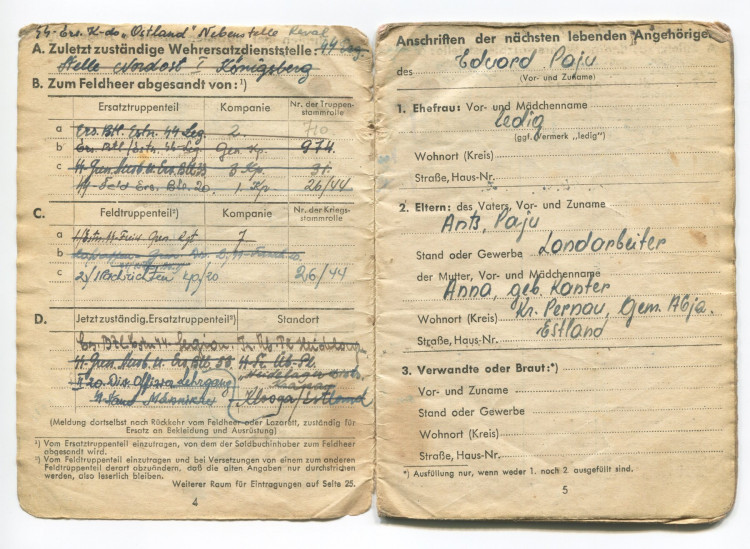 44-Ers. K-do „Ostland" Nebenstelle Reval
A. Zuletzt zuständige Wehrersatzdienststelle: 44 Erg.
Stelle Nordost I Königsberg
B. Zum Feldheer abgesandt von:¹)
Ersatztruppenteil Kompanie Nr. der Truppen-
stammrolle
a Ers. Btl. Estn. 44 Leg. 2. 710
b Ers. Btl/Estn. 44-Leg. Gen. Kp. 974.
c 44-Gren. Ausb. u. Ers. Btl. 33 3 Kp. 31.
44-Feld Ers. Btl. 20. 1. Kp 26/44
C. Feldtruppenteil²) Kompanie Nr. der Kriegs-
stammrolle
a 1/Estn. 44-Freiw. Gren. Rgt 7
b
c 2/Nachrichten Kp/20 26/44
D. Jetzt zuständig. Ersatztruppenteil²) Standort
Ers. Btl. Estn. 44-Legion. Tr. Üb. Pl. Heidelager
44-Gren. Ausb. u. Ers. Btl. 33. 44-Tr. Üb.-Pl.
Heidelager
II 20. Div. Lehrgang
Männiku Klooga/Estland
(Meldung dortselbst nach Rückkehr vom Feldheer oder Lazarett, zuständig für
Ersatz an Bekleidung und Ausrüstung)
¹) Vom Ersatztruppenteil einzutragen, von dem der Soldbuchinhaber zum Feldheer
abgesandt wird.
²) Vom Feldtruppenteil einzutragen und bei Versetzungen von einem zum anderen
Feldtruppenteil derart abzuändern, daß die alten Angaben nur durchstrichen
werden, also leserlich bleiben.
Weiterer Raum für Eintragungen auf Seite 25.
4
Anschriften der nächsten lebenden Angehörige
des Eduard Paju
(Vor- und Zuname)
1. Ehefrau: Vor- und Mädchenname
ledig
(ggf. Vermerk „ledig")
Wohnort (Kreis)
Straße, Haus-Nr.
2. Eltern: des Vaters, Vor- und Zuname
Ants, Paju
Stand oder Gewerbe Landarbeiter
der Mutter, Vor- und Mädchenname
Anna, geb. Kanter
Wohnort (Kreis) Kr. Pernau, Gem. Abja.
Straße, Haus-Nr. Estland
3. Verwandte oder Braut:*)
Vor- und Zuname
Stand oder Gewerbe
Wohnort (Kreis)
Straße, Haus-Nr.
*) Ausfüllung nur, wenn weder 1. noch 2. ausgefüllt sind.
5